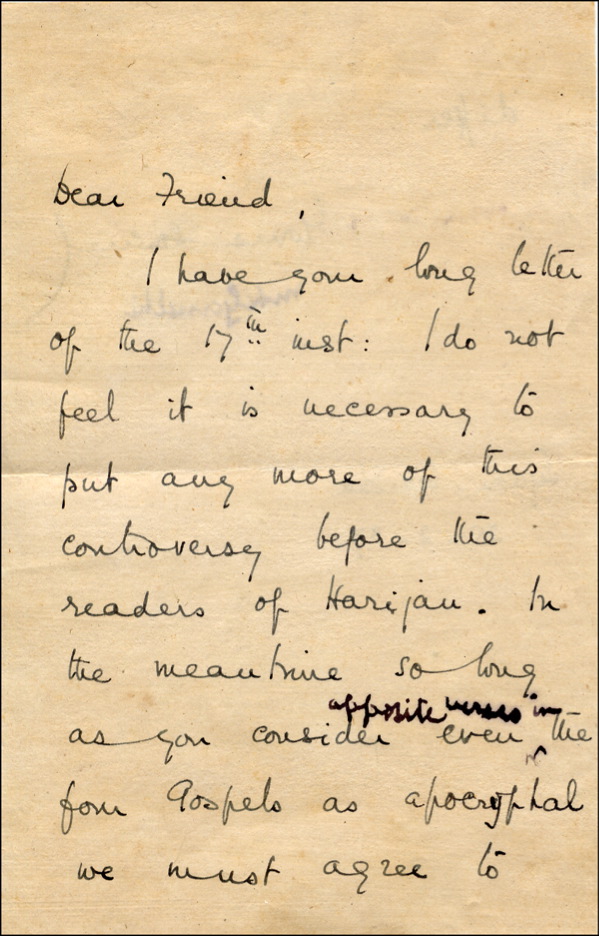 Dear Friend,
I have your long letter
of the 17th inst: I do not
feel it is necessary to
put any more of this
controversy before the
readers of Harijan. In
the meantime so long
opposite verses in
as you consider even the
four Gospels as apocryphal
we must agree to